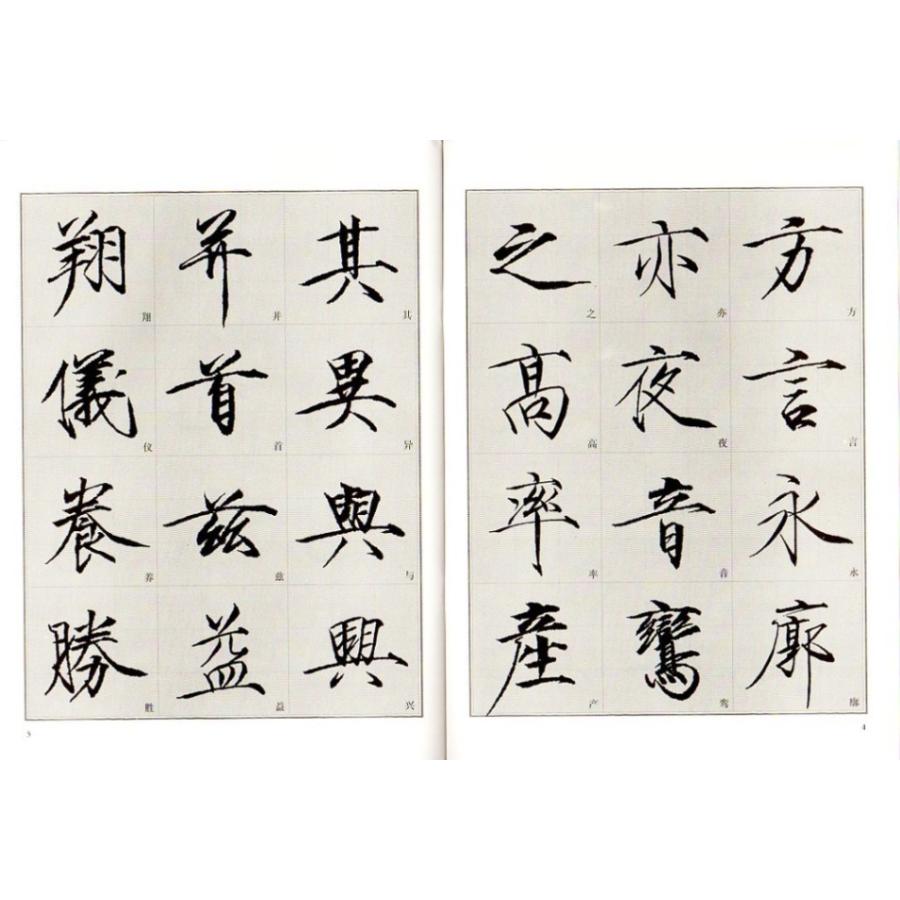 方言永廓
方言永廓
亦夜音鸞
亦夜音鸾
之髙率產
之高率产
4
其異與興
其异与兴
并首茲益
并首兹益
翔儀養勝
翔仪养胜
5